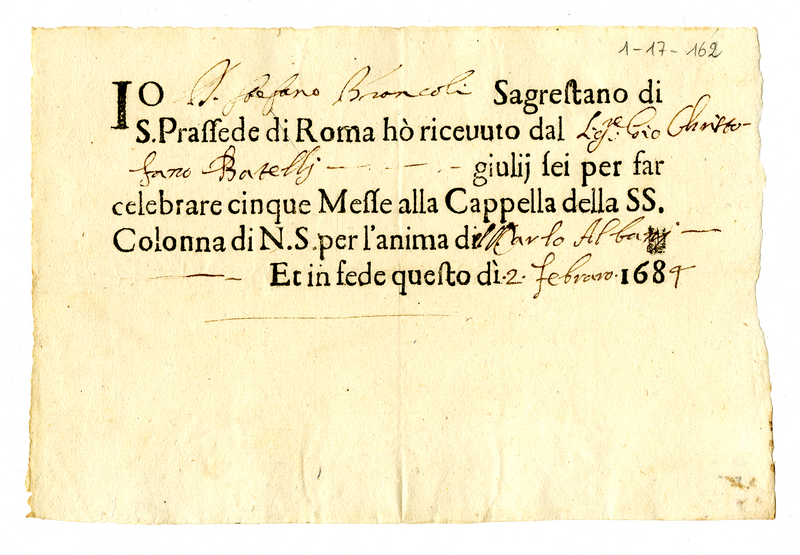 1-17-162
IO D. Stefano Broncoli Sagreſtano di
S. Praſſede di Roma hò riceuuto dal Chriſto-
fano Batelli - - - - - giulij ſei per far
celebrare cinque Meſſe alla Cappella della SS.
Colonna di N.S. per l'anima di Carlo Albani —
— Et in fede queſto dì .2. febraro. 1684